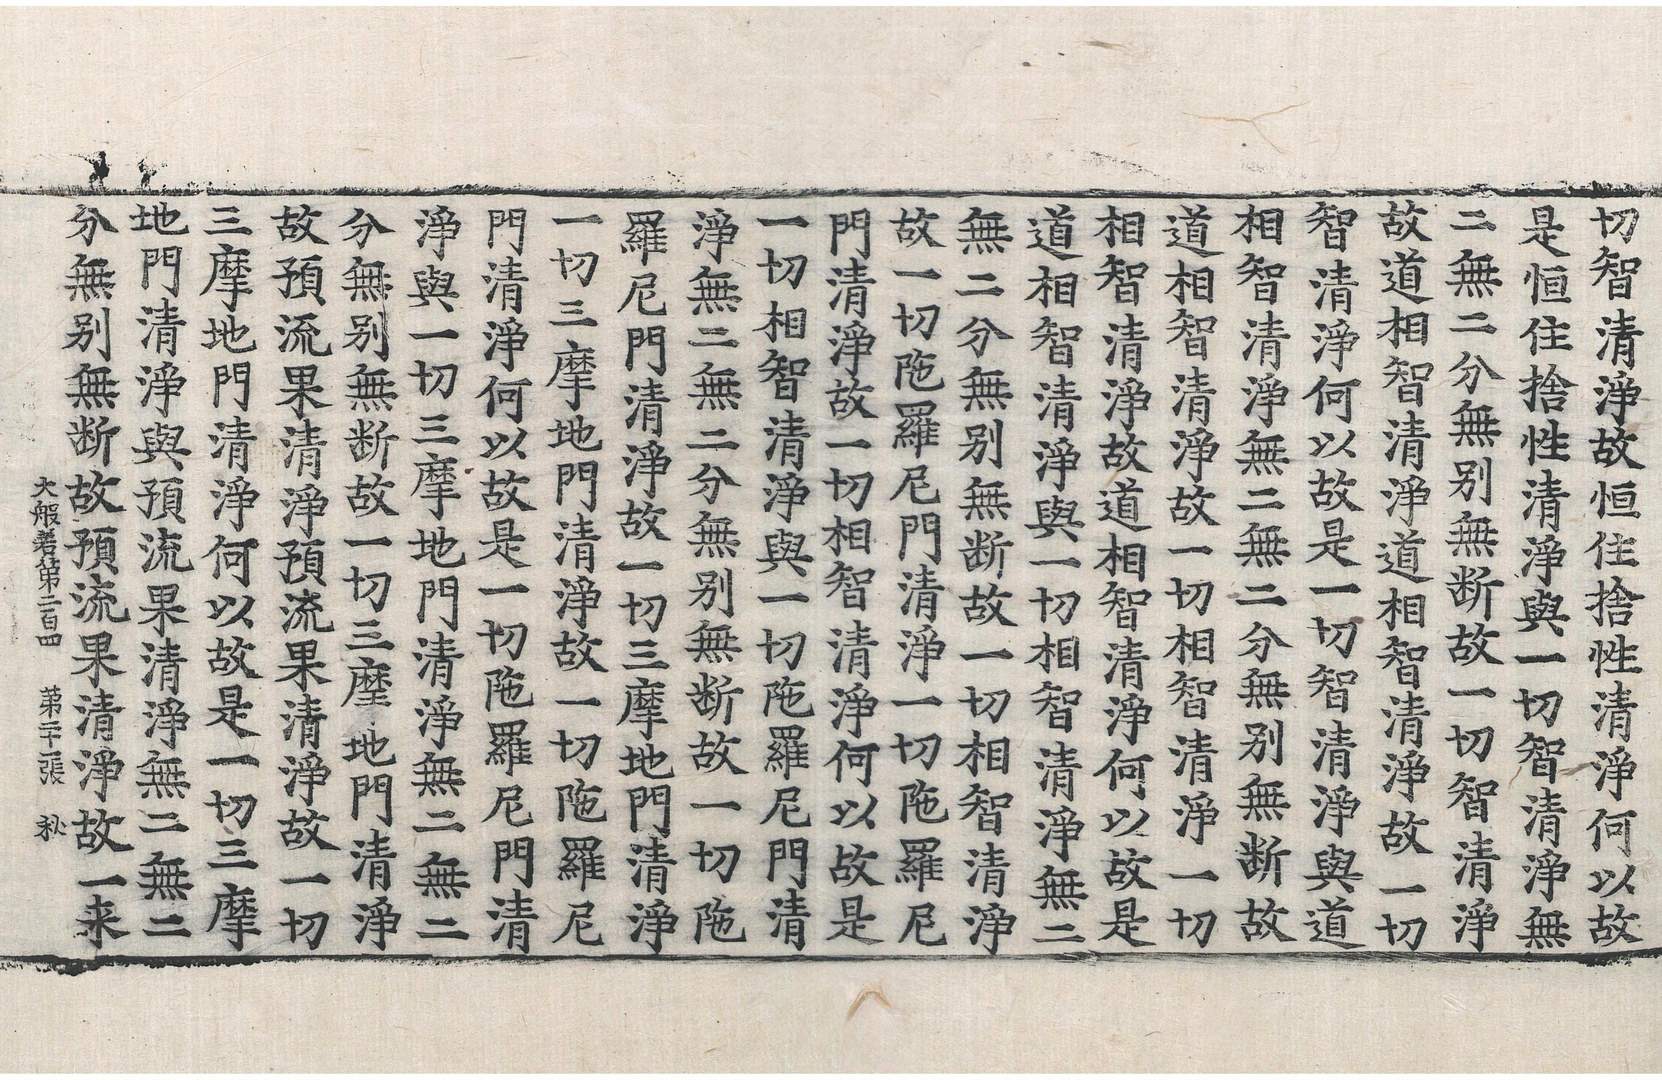 切智清淨故恒住捨性清淨何以故
是恒住捨性清淨與一切智清淨無
二無二分無别無断故一切智清淨
故道相智清淨道相智清淨故一切
智清淨何以故是一切智清淨與道
相智清淨無二無二分無别無断故
道相智清淨故一切相智清淨一切
相智清淨故道相智清淨何以故是
道相智清淨與一切相智清淨無二
無二分無别無断故一切相智清淨
故一切陁羅尼門清淨一切陁羅尼
門清淨故一切相智清淨何以故是
一切相智清淨與一切陁羅尼門清
淨無二無二分無别無断故一切陁
羅尼門清淨故一切三摩地門清淨
一切三摩地門清淨故一切陁羅尼
門清淨何以故是一切陁羅尼門清
淨與一切三摩地門清淨無二無二
分無别無断故一切三摩地門清淨
故預流果清淨預流果清淨故一切
三摩地門清淨何以故是一切三摩
地門清淨與預流果清淨無二無二
分無别無断故預流果清淨故一来
大般若第二百四 第張